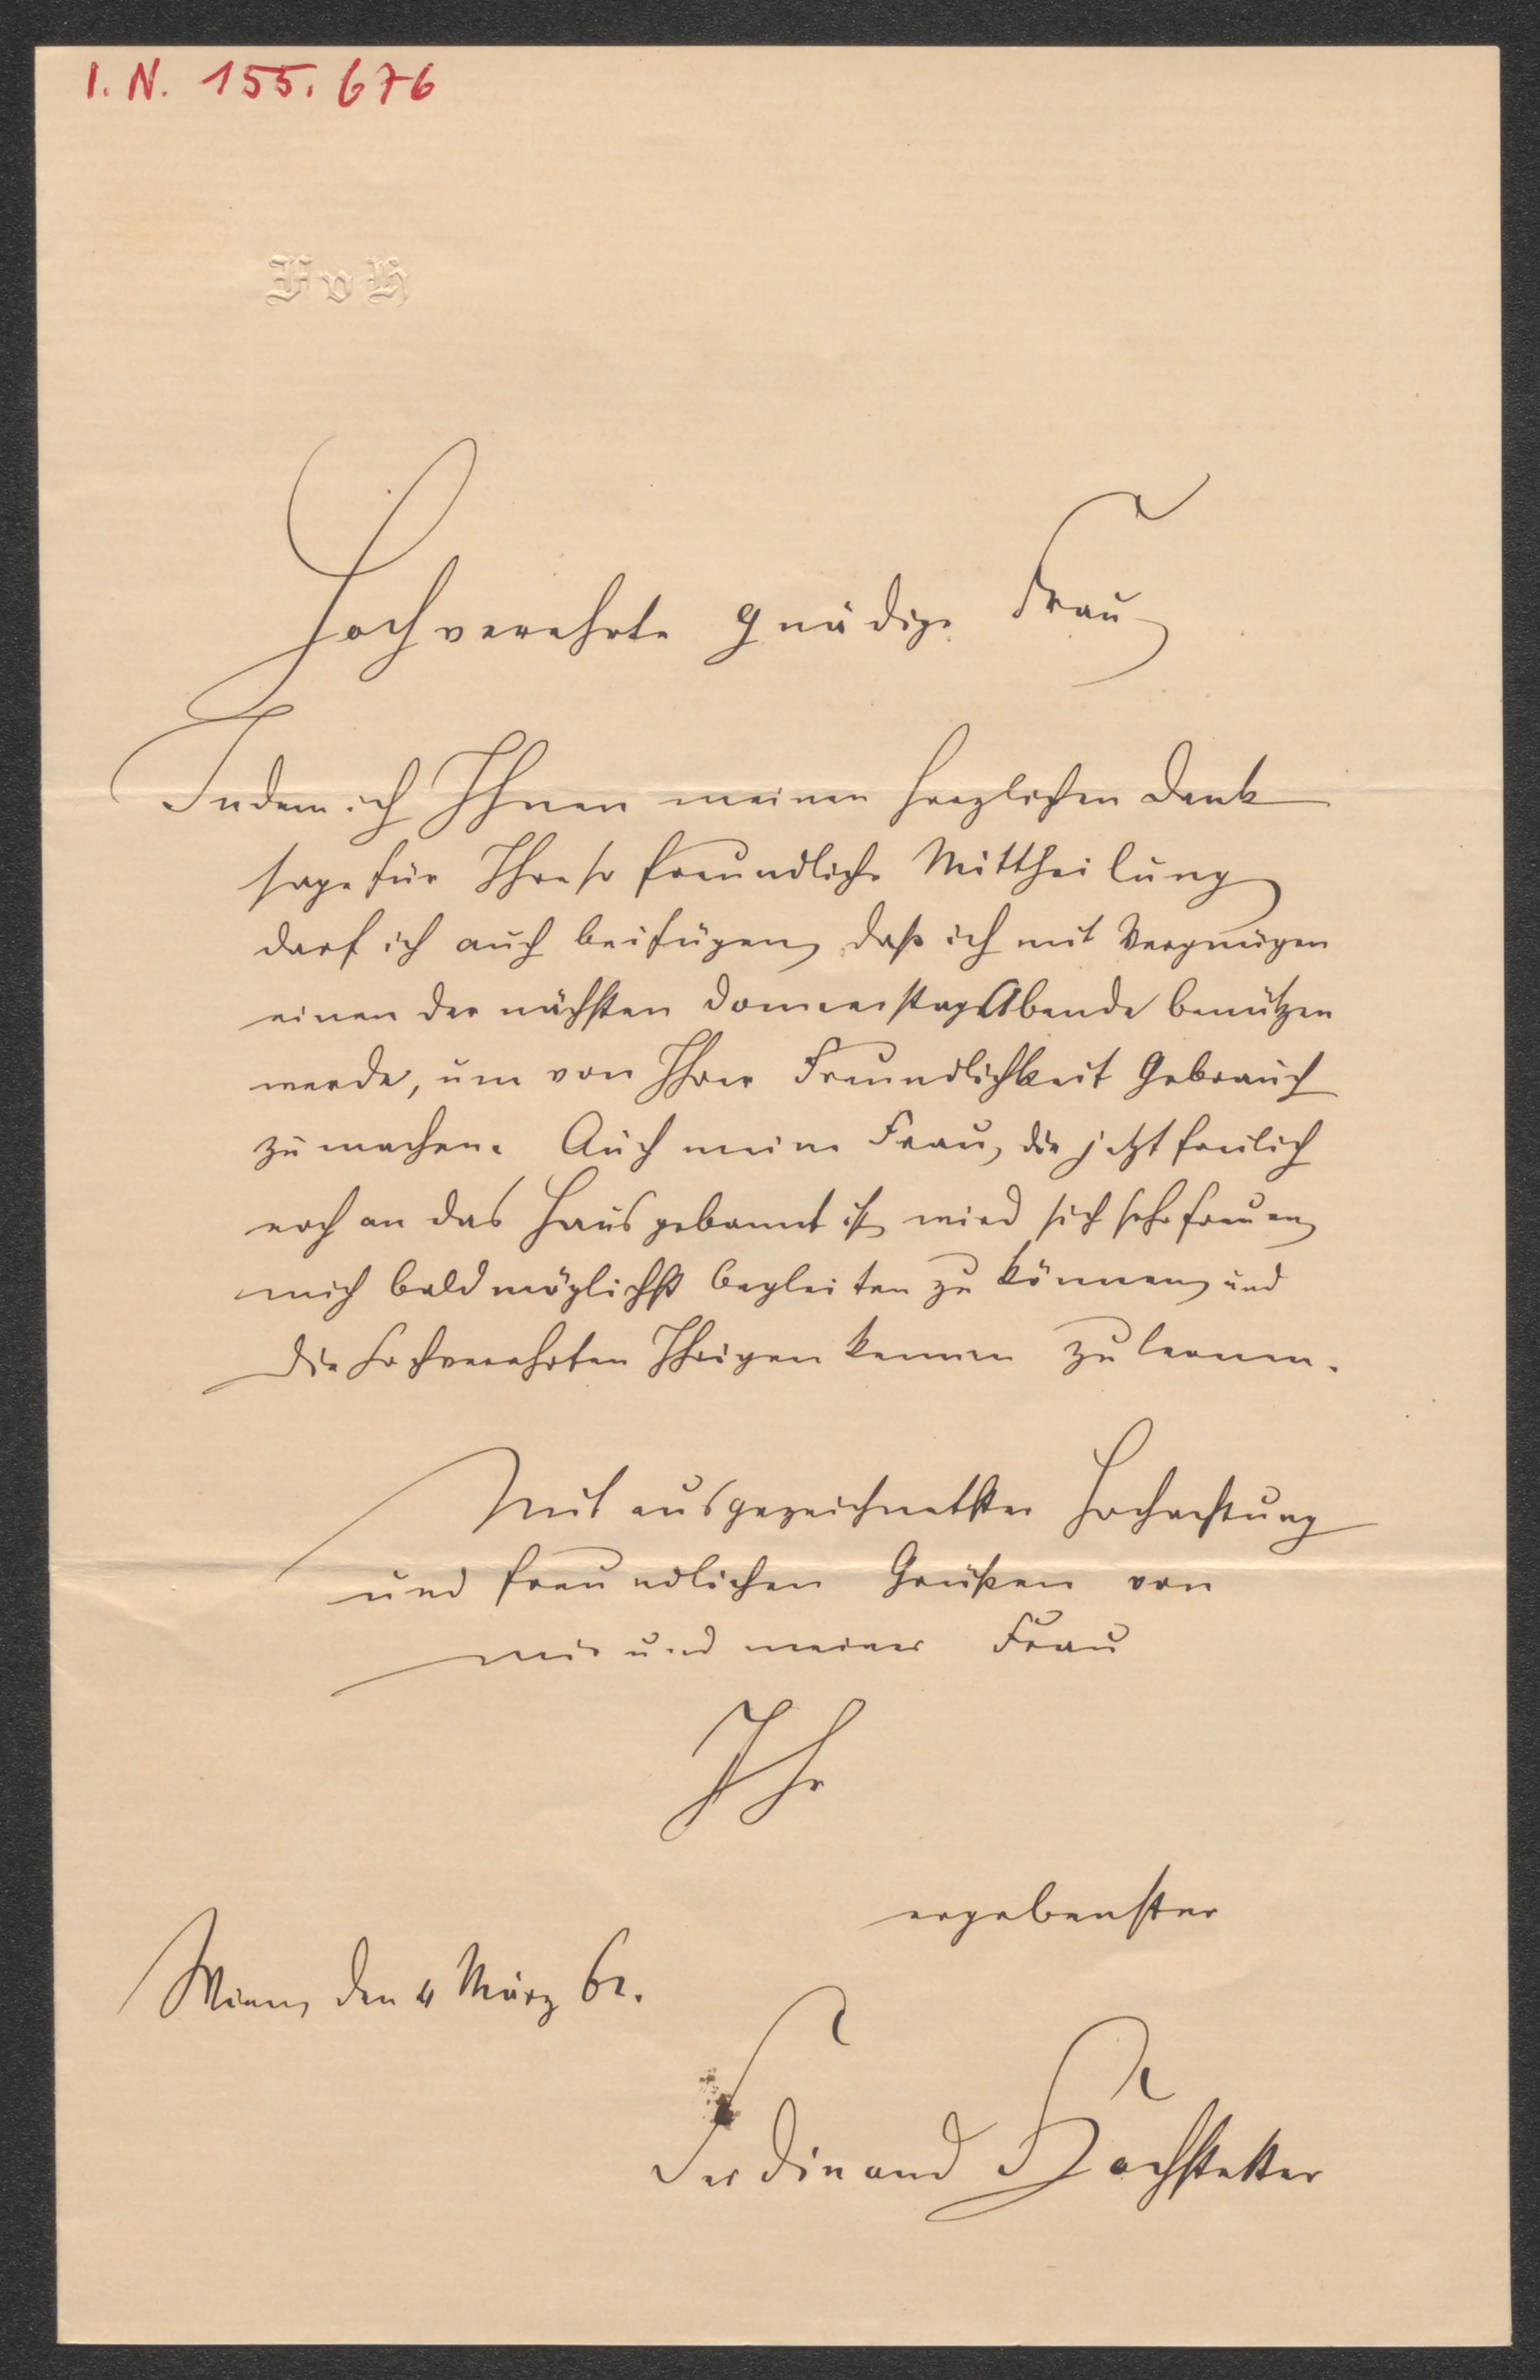 I. N. 155.676
F v H
Hochverehrte gnädige Frau
Indem ich Ihnen meinen herzlichen Dank
sage für Ihre so freundliche Mittheilung
darf ich auch beifügen, daß ich mit Vergnügen
einen der nächsten Donnerstag Abende benützen
werde, um von Ihrer Freundlichkeit Gebrauch
zu machen. Auch meine Frau, die jetzt freilich
noch an das Haus gebannt ist, wird sich sehr freuen,
mich baldmöglichst begleiten zu können, und
die hochverehrten Ihrigen kennen zu lernen.
Mit ausgezeichnetster Hochachtung
und freundlichen Grüßen von
mir und meiner Frau
Ihr
ergebenster
Wien, den 4 März 62.
Ferdinand Hochstetter